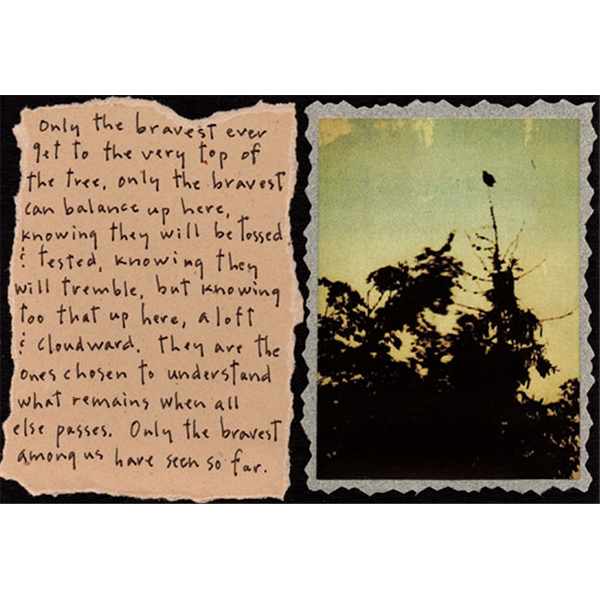 Only the bravest ever
get to the very top of
the tree, only the bravest
can balance up here,
knowing they will be tossed
& tested, knowing they
will tremble, but knowing
too that up here, aloft
& cloudward. They are the
ones chosen to understand
what remains when all
else passes. Only the bravest
among us have seen so far.